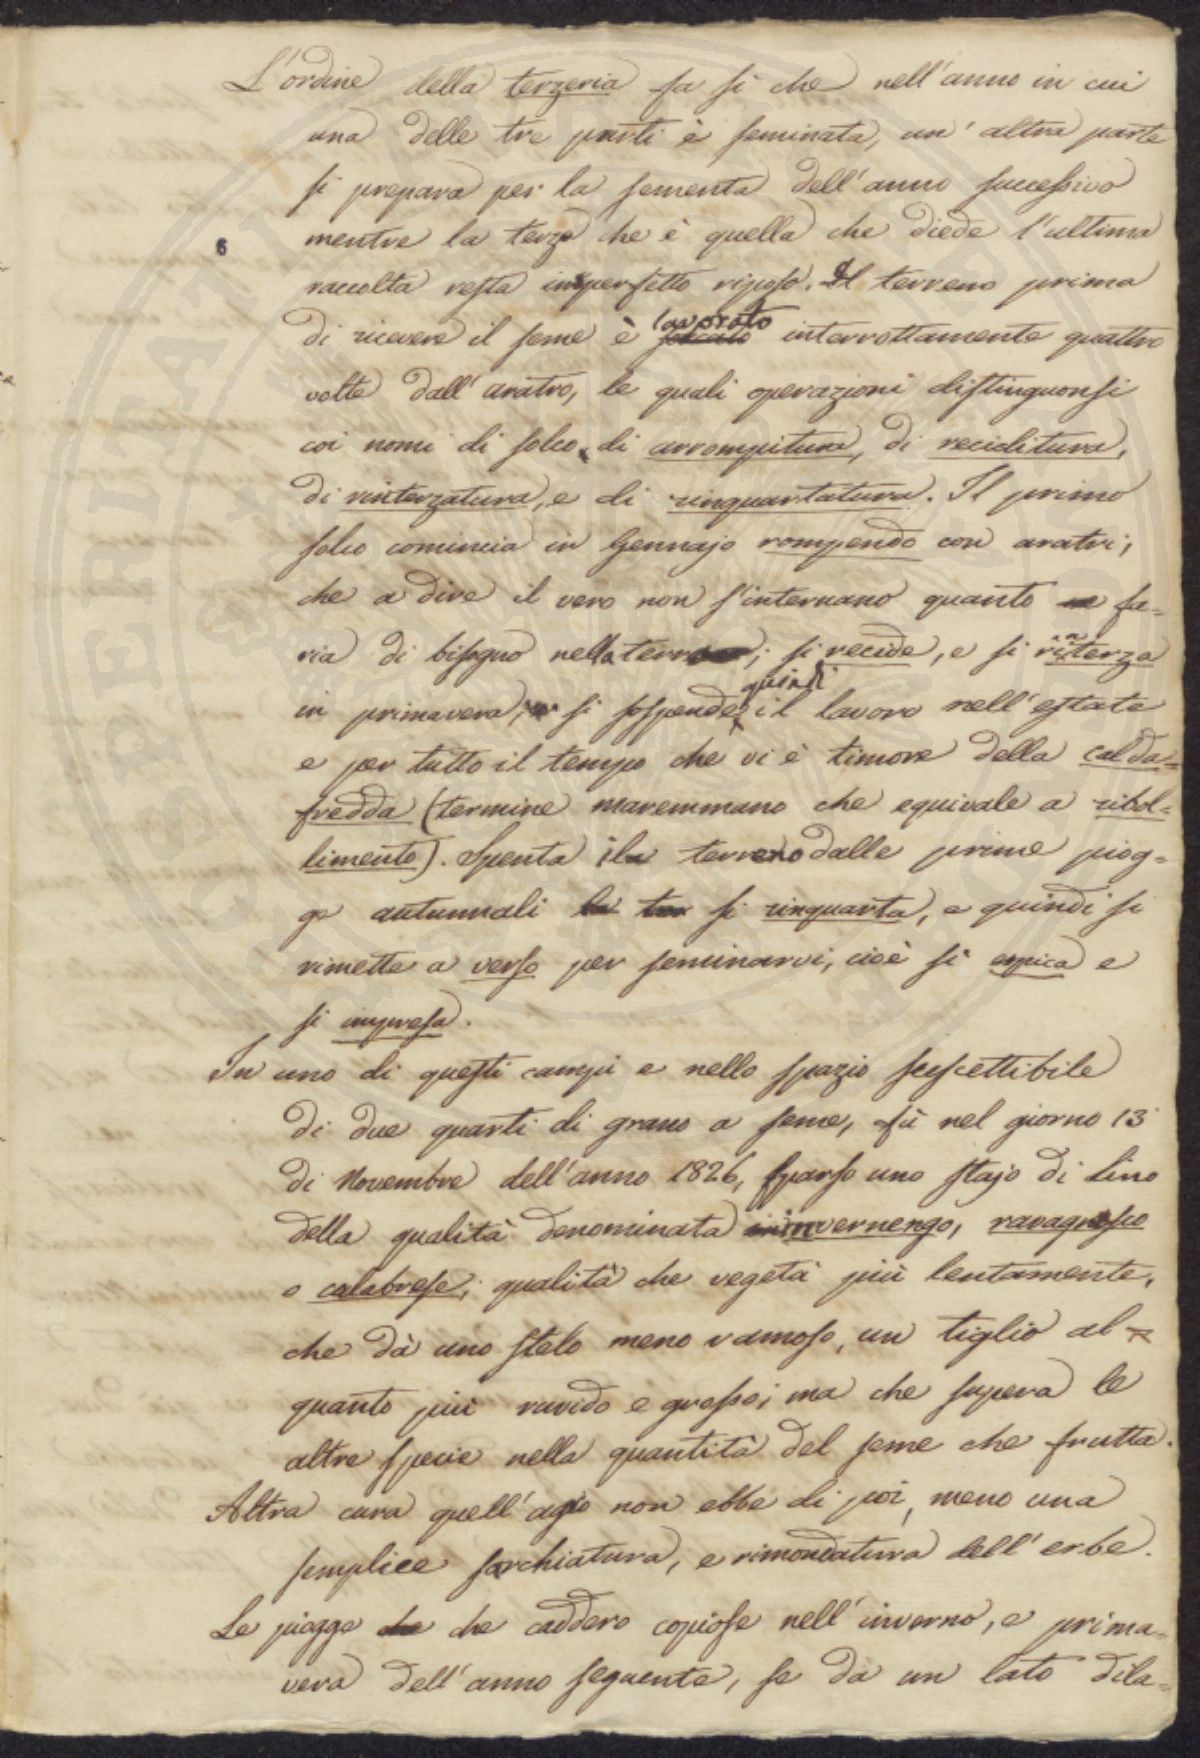 L'ordine della terzeria fa si che nell'anno in cui
una delle tre parti è seminata, un' altra parte
si prepara per la sementa dell'anno successivo
6
mentre la terza che è quella che diede l'ultima
raccolta resta in perfetto riposo. Il terreno prima
lavorato
di ricevere il seme è solcato interrottamente quattro
volte dall'aratro, le quali operazioni distinguonsi
coi nomi di solco, di arrompitura, di reciditura,
di rinterzatura, e di rinquartatura. Il primo
solco comincia in Gennajo rompendo con aratri,
che a dire il vero non s'internano quanto sa=
ria di bisogno nella terra; si recide, e si rinterza
quindi
in primavera; si sospende il lavoro nell'estate
e per tutto il tempo che vi è timore della calda=
fredda (termine maremmano che equivale a ribol=
limento). Spenta il terreno dalle prime piog=
ge autunnali si rinquarta, e quindi si
rimette a verso per seminarvi, cioè si
si impresa.
In uno di questi campi e nello spazio suscettibile
di due quarti di grano a seme, fù nel giorno 13
di Novembre dell'anno 1826, sparso uno stajo di Lino
della qualità denominata invernengo, ravagnesco
o calabrese; qualità che vegeta più lentamente,
che dà uno stelo meno ramoso, un tiglio al=
quanto più ruvido e grosso; ma che supera le
altre specie nella quantità del seme che frutta.
Altra cura quell' agio non ebbe di poi, meno una
semplice sarchiatura, e rimondatura dell' erbe.
Le piogge che che caddero copiose nell' inverno, e prima=
vera dell'anno seguente, se da un lato dila=